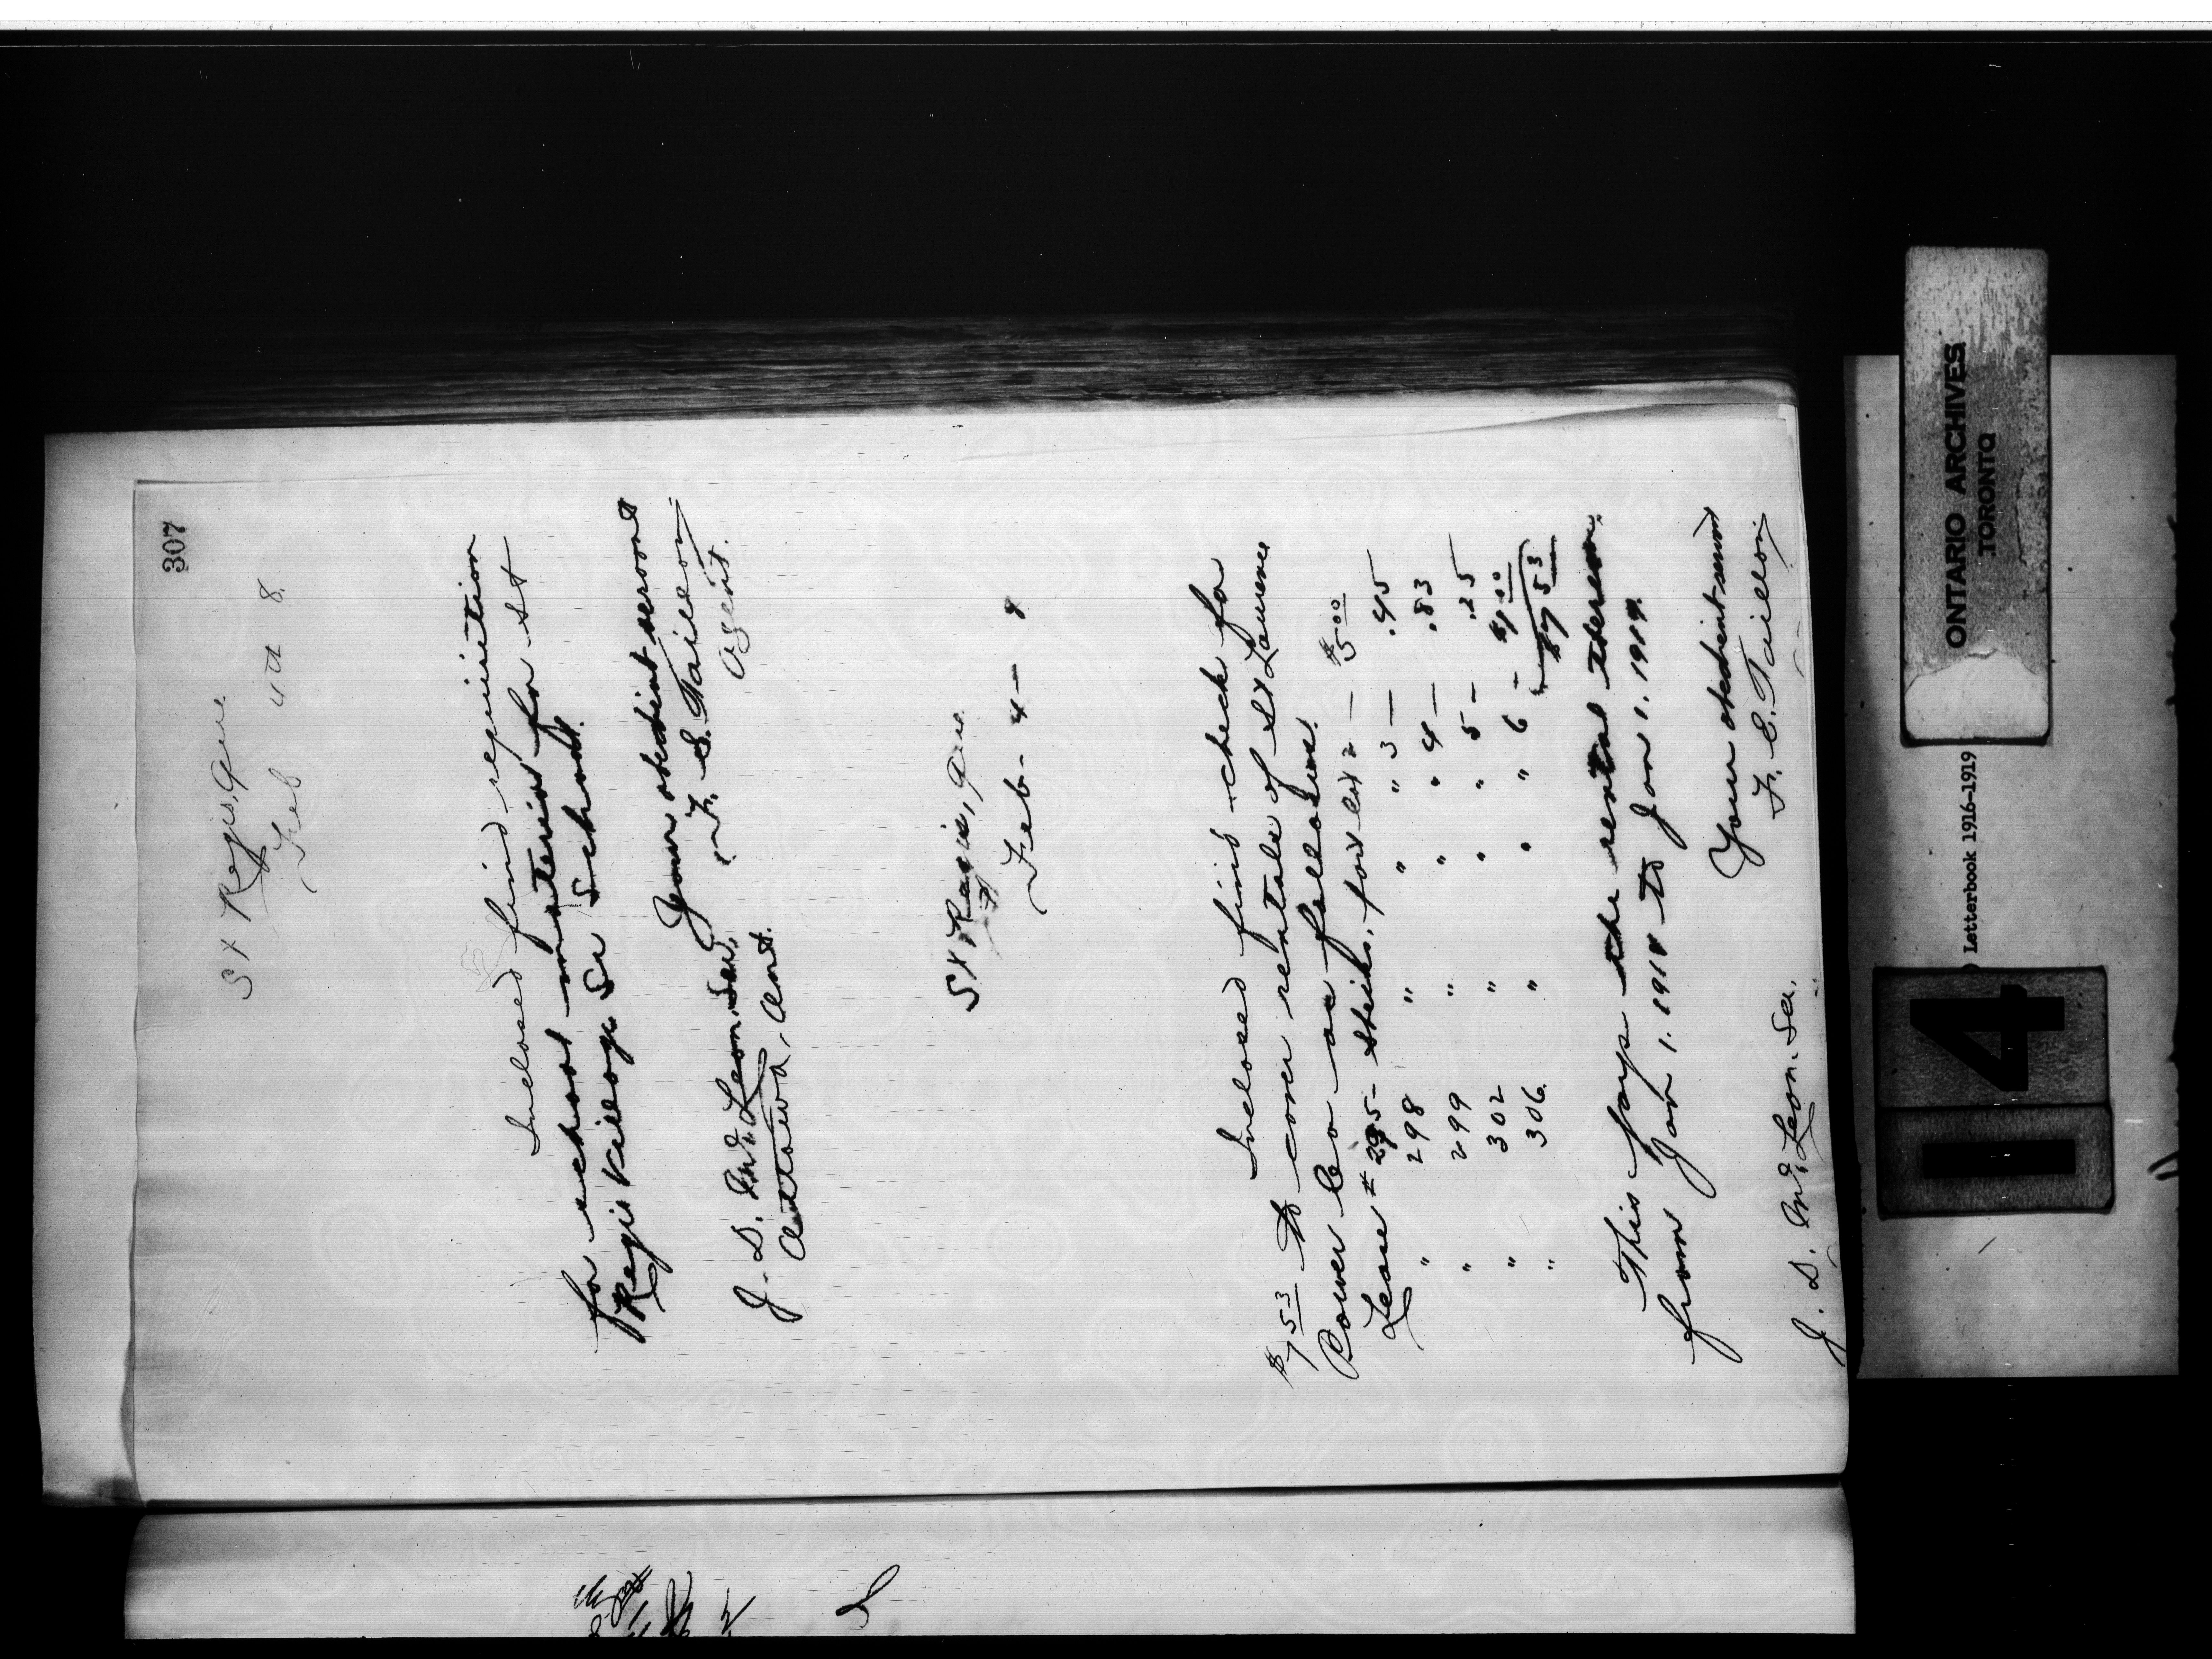 307
St Regis, Que
Feb 4th 8.
Inclosed find requisition
for school material for St
Regis Village Sr School.
Your obedient servant
F. E. Taillon
Agent.
J. D. McLean, Sec,
Ottawa, Ont.
St Regis, Que.
Feb- 4 — 8
Inclosed find check for
$7.53 to cover rentals of St Laurence
Power Co as follows:
Lease # 295 Sheiks, for lot 2 — $5.00
" 298 " " " 3 — .45
" 299 " " " 4 — .83
" 302 " " " 5 — .25
" 306 " " " 6 - $1.00
$7.53
This pays the rental thereon
from Jan 1. 1918 to Jan 1. 1919.
Your obedient servant
F. E. Taillon
J. D. McLean. Sec.
ONTARIO ARCHIVES
TORONTO
Letterbook 1916-1919
14